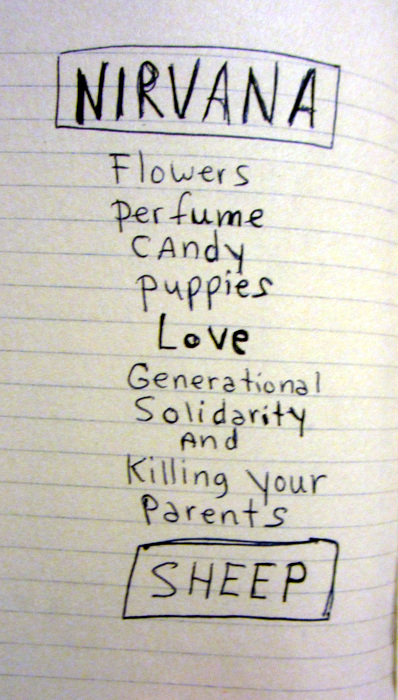 NIRVANA
Flowers
Perfume
CAndy
puppies
Love
Generational
Solidarity
And
Killing your
Parents
SHEEP